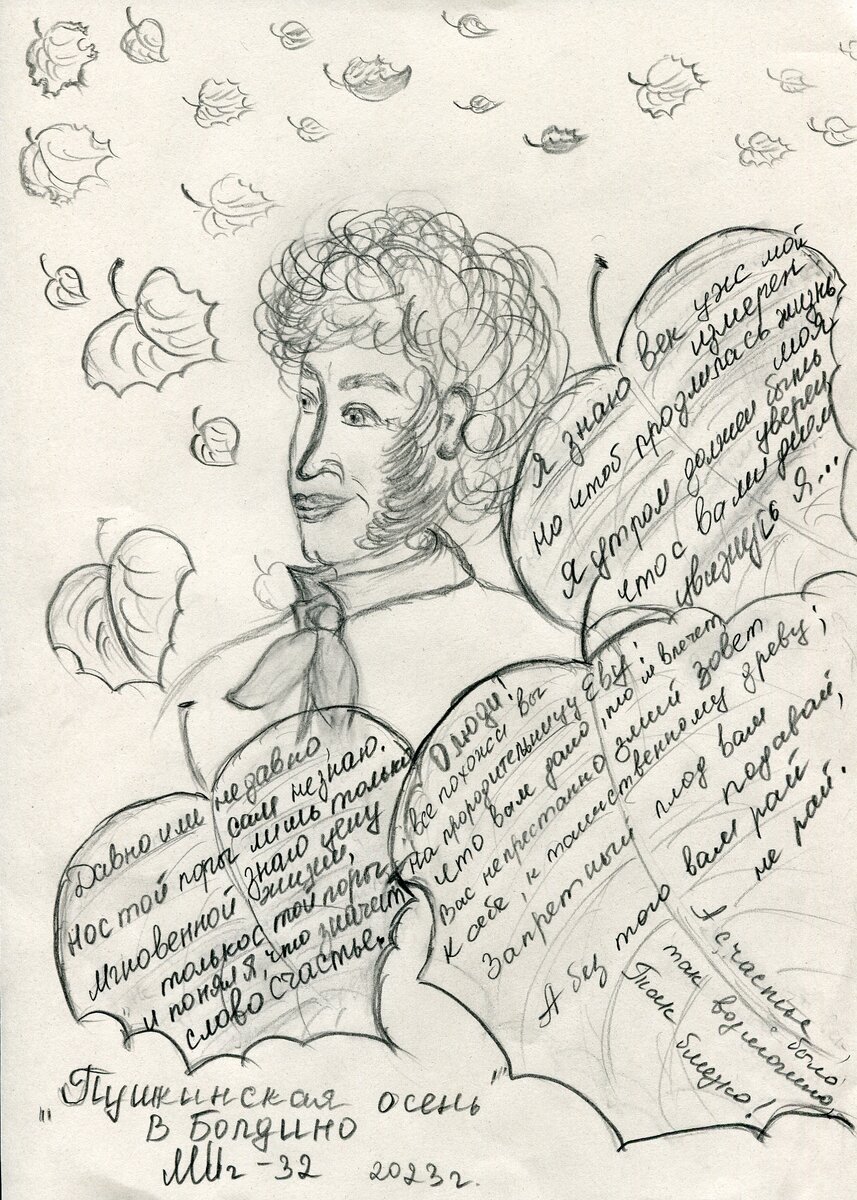 Я знаю век уж мой
измерен
но чтоб продлилась жизнь
моя
Я утром должен быть
уверен
что с вами днем
увижусь я...
О люди!
все похожи вы
на прородительницу Еву:
что вам дано, то не влечет
Вас непрестанно змий зовет
к себе, к таинственному древу;
Запретный плод вам
подавай,
А без того вам рай
не рай.
А счастье было
так возможно,
Так близко!
Давно или недавно,
сам не знаю.
Но с той поры лишь только
знаю цену
мгновенной жизни,
только с той поры
и понял я, что значит
слово счастье.
"Пушкинская осень"
в Болдино
МШг-32 2023г.